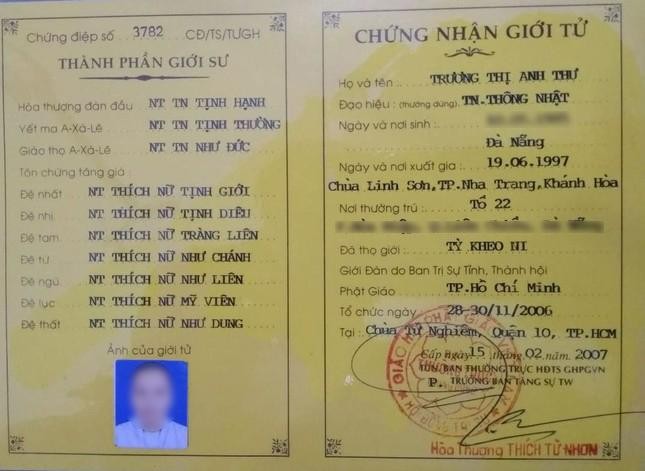 Chứng điệp số 3782 CĐ/TS/TƯGH
THÀNH PHẦN GIỚI SƯ
Hòa thượng đàn đầu NT TN TỊNH HẠNH
Yết ma A-Xà-Lê NT TN TỊNH THƯỜNG
Giáo thọ A-Xà-Lê NT TN NHƯ ĐỨC
Tôn chứng tăng già :
Đệ nhất NT THÍCH NỮ TỊNH GIỚI
Đệ nhị NT THÍCH NỮ TỊNH DIỆU
Đệ tam NT THÍCH NỮ TRÀNG LIÊN
Đệ tứ NT THÍCH NỮ NHƯ CHÁNH
Đệ ngũ NT THÍCH NỮ NHƯ LIÊN
Đệ lục NT THÍCH NỮ MỸ VIÊN
Đệ thất NT THÍCH NỮ NHƯ DUNG
Ảnh của giới tử
CHỨNG NHẬN GIỚI TỬ
Họ và tên : TRƯƠNG THỊ ANH THƯ
Đạo hiệu : (thường dùng) TN.THÔNG NHẬT
Ngày và nơi sinh :
Đà Nẵng
Ngày và nơi xuất gia : 19.06.1997
Chùa Linh Sơn,TP.Nha Trang,Khánh Hòa
Nơi thường trú : Tổ 22
Đã thọ giới : TỲ KHEO NI
Giới Đàn do Ban Trị Sự Tỉnh, Thành hội
Phật Giáo TP.Hồ Chí Minh
Tổ chức ngày 28-30/11/2006
Tại : Chùa Từ Nghiêm, Quận 10, TP.HCM
Cấp ngày 15 tháng 02 năm 2007
TUN. BAN THƯỜNG TRỰC HĐTS GHPGVN
P. TRƯỞNG BAN TĂNG SỰ TW
Hòa Thượng THÍCH TỪ NHƠN